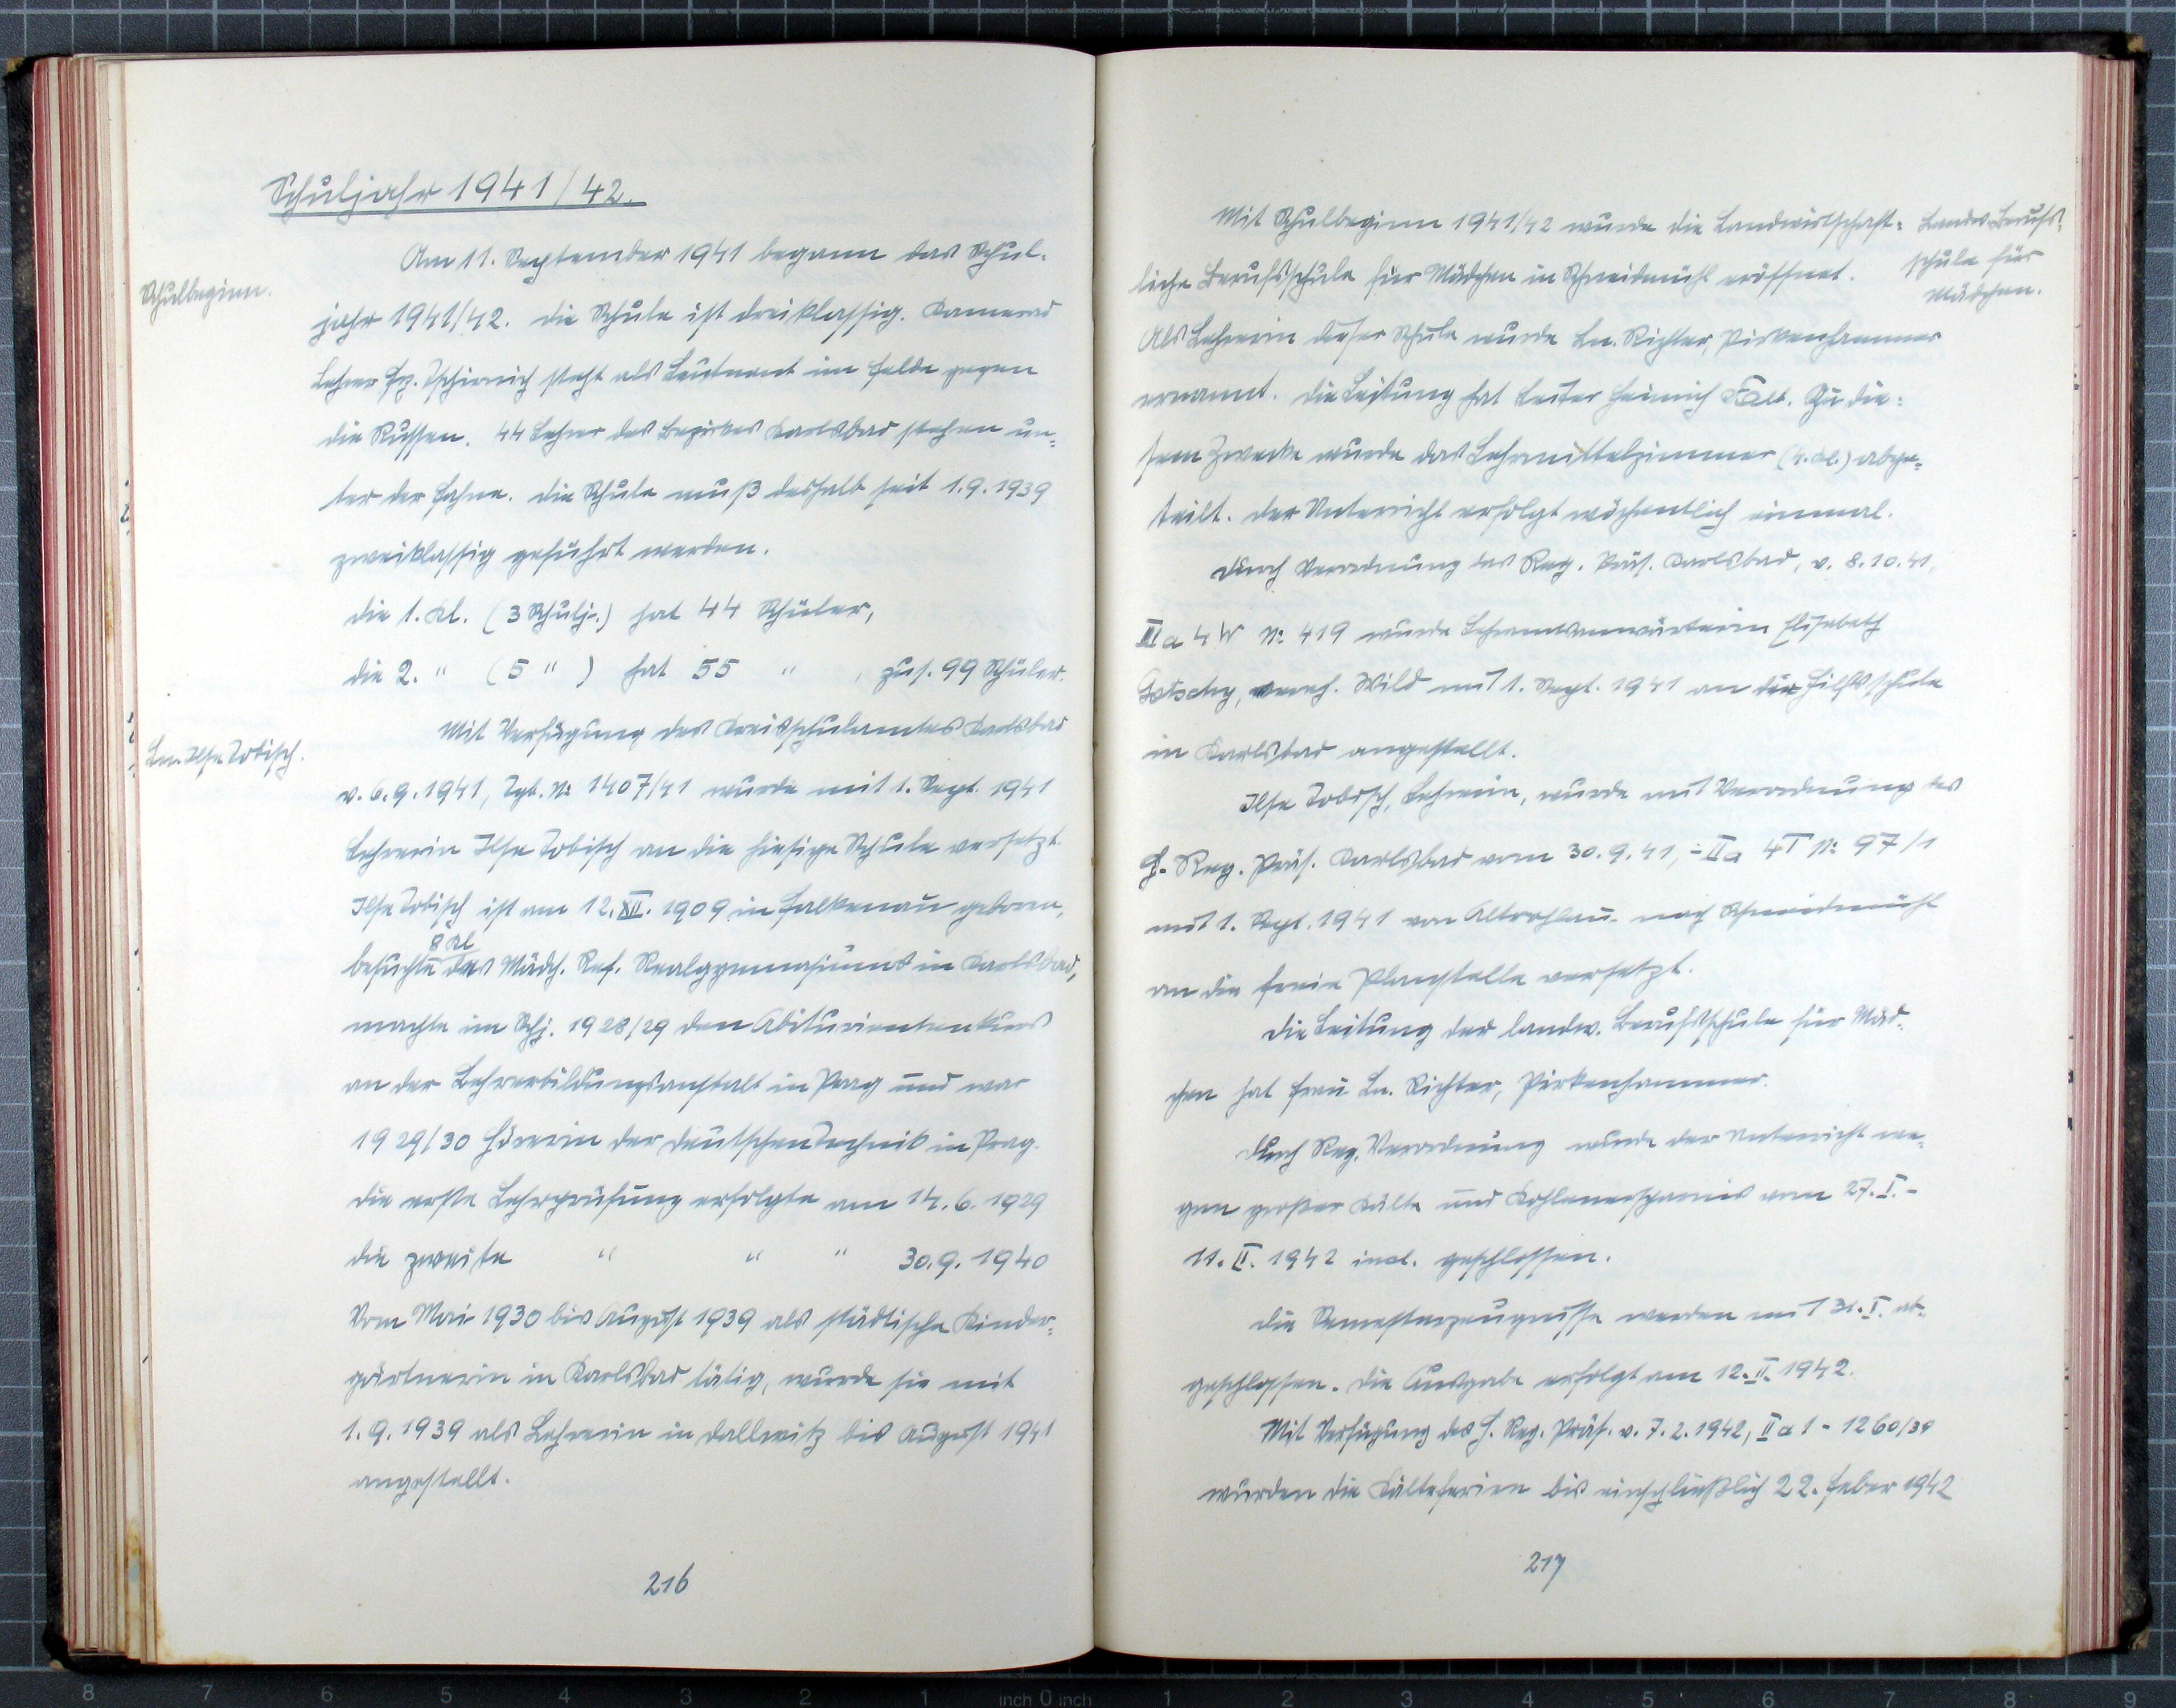 Schuljahr 1941/42.
Am 11. September 1941 begann das Schul-
Schulbeginn.
jahr 1941/42. Die Schule ist dreiklassig. Kamerad
Lehrer Frz. Tschirnich steht als Leutnant im Felde gegen
die Russen. 44 Lehrer des Bezirkes Karlsbad stehen un=
ter der Fahne. Die Schule muß deshalb seit 1.9.1939
zweiklassig geführt werden.
Die 1. Kl. (3 Schulj.) hat 44 Schüler,
die 2. " (5 " ) hat 55 " , zus. 99 Schüler.
Mit Verfügung des Kreisschulamtes Karlsbad
Ln. Ilse Tobisch.
v. 6.9.1941, Tgb. N: 1407/41 wurde mit 1. Sept. 1941
Lehrerin Ilse Tobisch an die hiesige Schule versetzt.
Ilse Tobisch ist am 12. XII. 1909 in Falkenau geboren,
8 Kl
besuchte des Mädch. Ref. Realgymnasiums in Karlsbad,
machte im Schj. 1928/29 den Abiturientenkurs
an der Lehrerbildungsanstalt in Prag und war
1929/30 Hörerin der Deutschen Technik in Prag.
Die erste Lehrprüfung erfolgte am 14.6.1929
die zweite " " " 30.9.1940
Vom Mai 1930 bis August 1939 als städtische Kinder=
gärtnerin in Karlsbad tätig, wurde sie mit
1.9.1939 als Lehrerin in Dallwitz bis August 1941
angestellt.
216
Mit Schulbeginn 1941/42 wurde die Landwirtschaft=
Landw. Berufs-
schule für
Mädchen.
liche Berufsschule für Mädchen in Schneidmühl eröffnet.
Als Lehrerin dieser Schule wurde Ln. Richter, Pirkenhammer
ernannt. Die Leitung hat Leiter Heinrich Falb. Zu die=
sem Zwecke wurde das Lehrmittelzimmer (4. Kl.) abge=
teilt. Der Unterricht erfolgt wöchentlich einmal.
Durch Verordnung des Reg. Präs. Karlsbad, v. 8.10.41,
IIa 4 W N: 419 wurde Lehramtsanwärterin Elisabeth
Gotschy, vereh. Wild mit 1. Sept. 1941 an die Hilfsschule
in Karlsbad angestellt.
Ilse Tobisch, Lehrerin, wurde mit Verordnung des
H. Reg. Präs. Karlsbad vom 30.9.41, - IIa 4T N: 97/1
mit 1. Sept. 1941 von Altrohlau nach Schneidmühl
an die freie Planstelle versetzt.
Die Leitung der landw. Berufsschule für Mäd-
chen hat Frau Ln. Richter, Pirkenhammer.
Durch Reg. Verordnung wurde der Unterricht we=
gen großer Kälte und Kohlenersparnis vom 27. I. -
11. II. 1942 incl. geschlossen.
Die Semesterzeugnisse werden mit 31. I. ab-
geschlossen. Die Ausgabe erfolgt am 12. II. 1942.
Mit Verfügung des H. Reg. Präs. v. 7.2.1942, II a 1 - 1260/39
wurden die Kälteferien bis einschließlich 22. Feber 1942
217